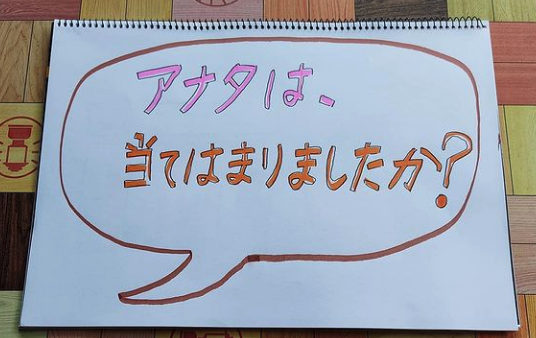 アナタは、
当てはまりましたか?